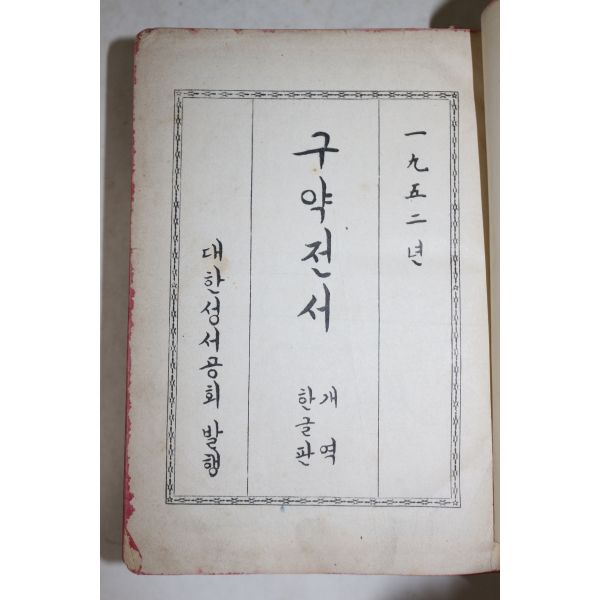 一九五二년
구약전서
개역
한글판
대한성서공회 발행